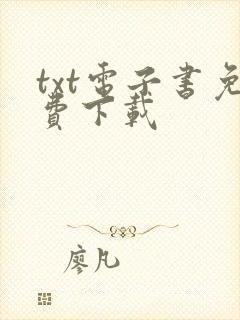 txt電子書免
費下載
廖凡